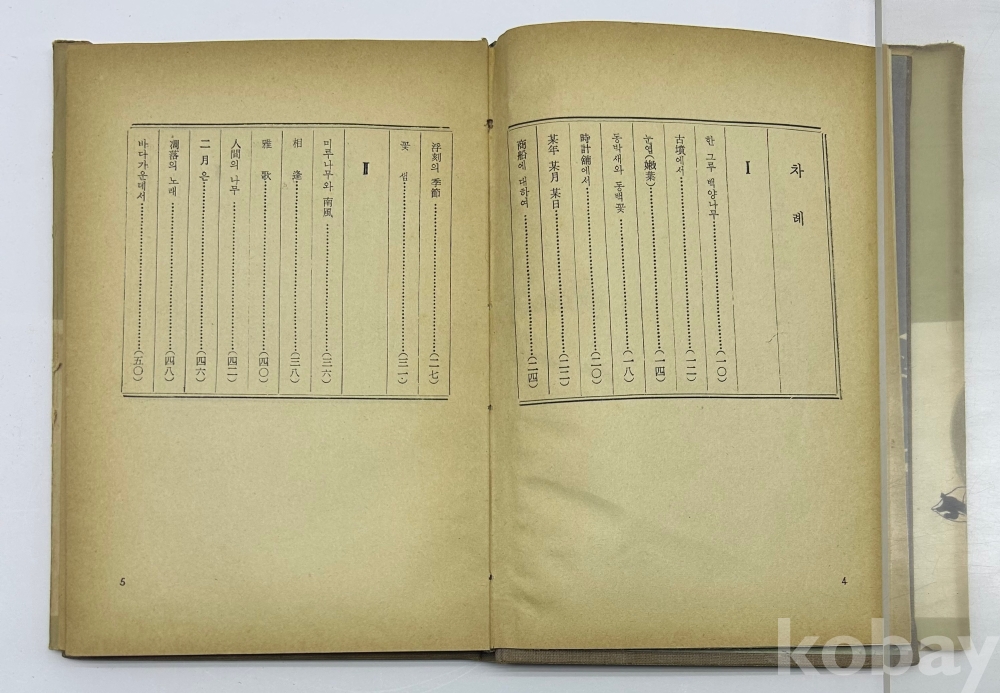 차 례
I
한 그루 백양나무(一〇)
古墳에서(一二)
눈엽(嫩葉)(一四)
동박새와 동백꽃(一八)
時計舖에서(二〇)
某年 某月 某日(二二)
商船에 대하여(二四)
4
浮刻의 季節(二七)
꽃 샘(三一)
Ⅱ
미루나무와 南風(三六)
相 逢(三八)
雅 歌(四〇)
人間의 나무(四二)
二 月 은(四六)
凋落의 노래(四八)
바다가운데서(五〇)
5
kobay